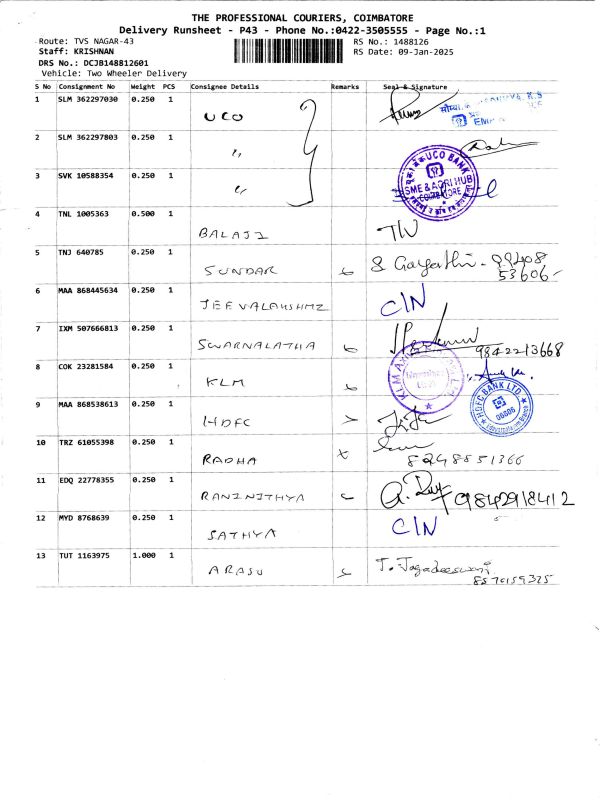 THE PROFESSIONAL COURIERS, COIMBATORE
Delivery Runsheet - P43 - Phone No.:0422-3505555 - Page No.:1
Route: TVS NAGAR-43 RS No.: 1488126
Staff: KRISHNAN RS Date: 09-Jan-2025
DRS No.: DCJB148812601
Vehicle: Two Wheeler Delivery
S No Consignment No Weight PCS Consignee Details Remarks Seal & Signature
1 SLM 362297030 0.250 1 UCO
2 SLM 362297803 0.250 1 "
3 SVK 10588354 0.250 1 "
UCO BANK
SME & AGRI HUB
COIMBATORE
4 TNL 1005363 0.500 1 BALAJI
5 TNJ 640785 0.250 1 SUNDAR S Gayathri - 99408
53606
6 MAA 868445634 0.250 1 JEEVALAKSHMI CIN
7 IXM 507666813 0.250 1 SWARNALATHA 9842213668
8 COK 23281584 0.250 1 KLM
9 MAA 868538613 0.250 1 HDFC
HDFC BANK LTD.
10 TRZ 61055398 0.250 1 RADHA 8248851366
11 EDQ 22778355 0.250 1 RANINITHYA 9842918412
12 MYD 8768639 0.250 1 SATHYA CIN
13 TUT 1163975 1.000 1 ARASU T. Jagadeeswari